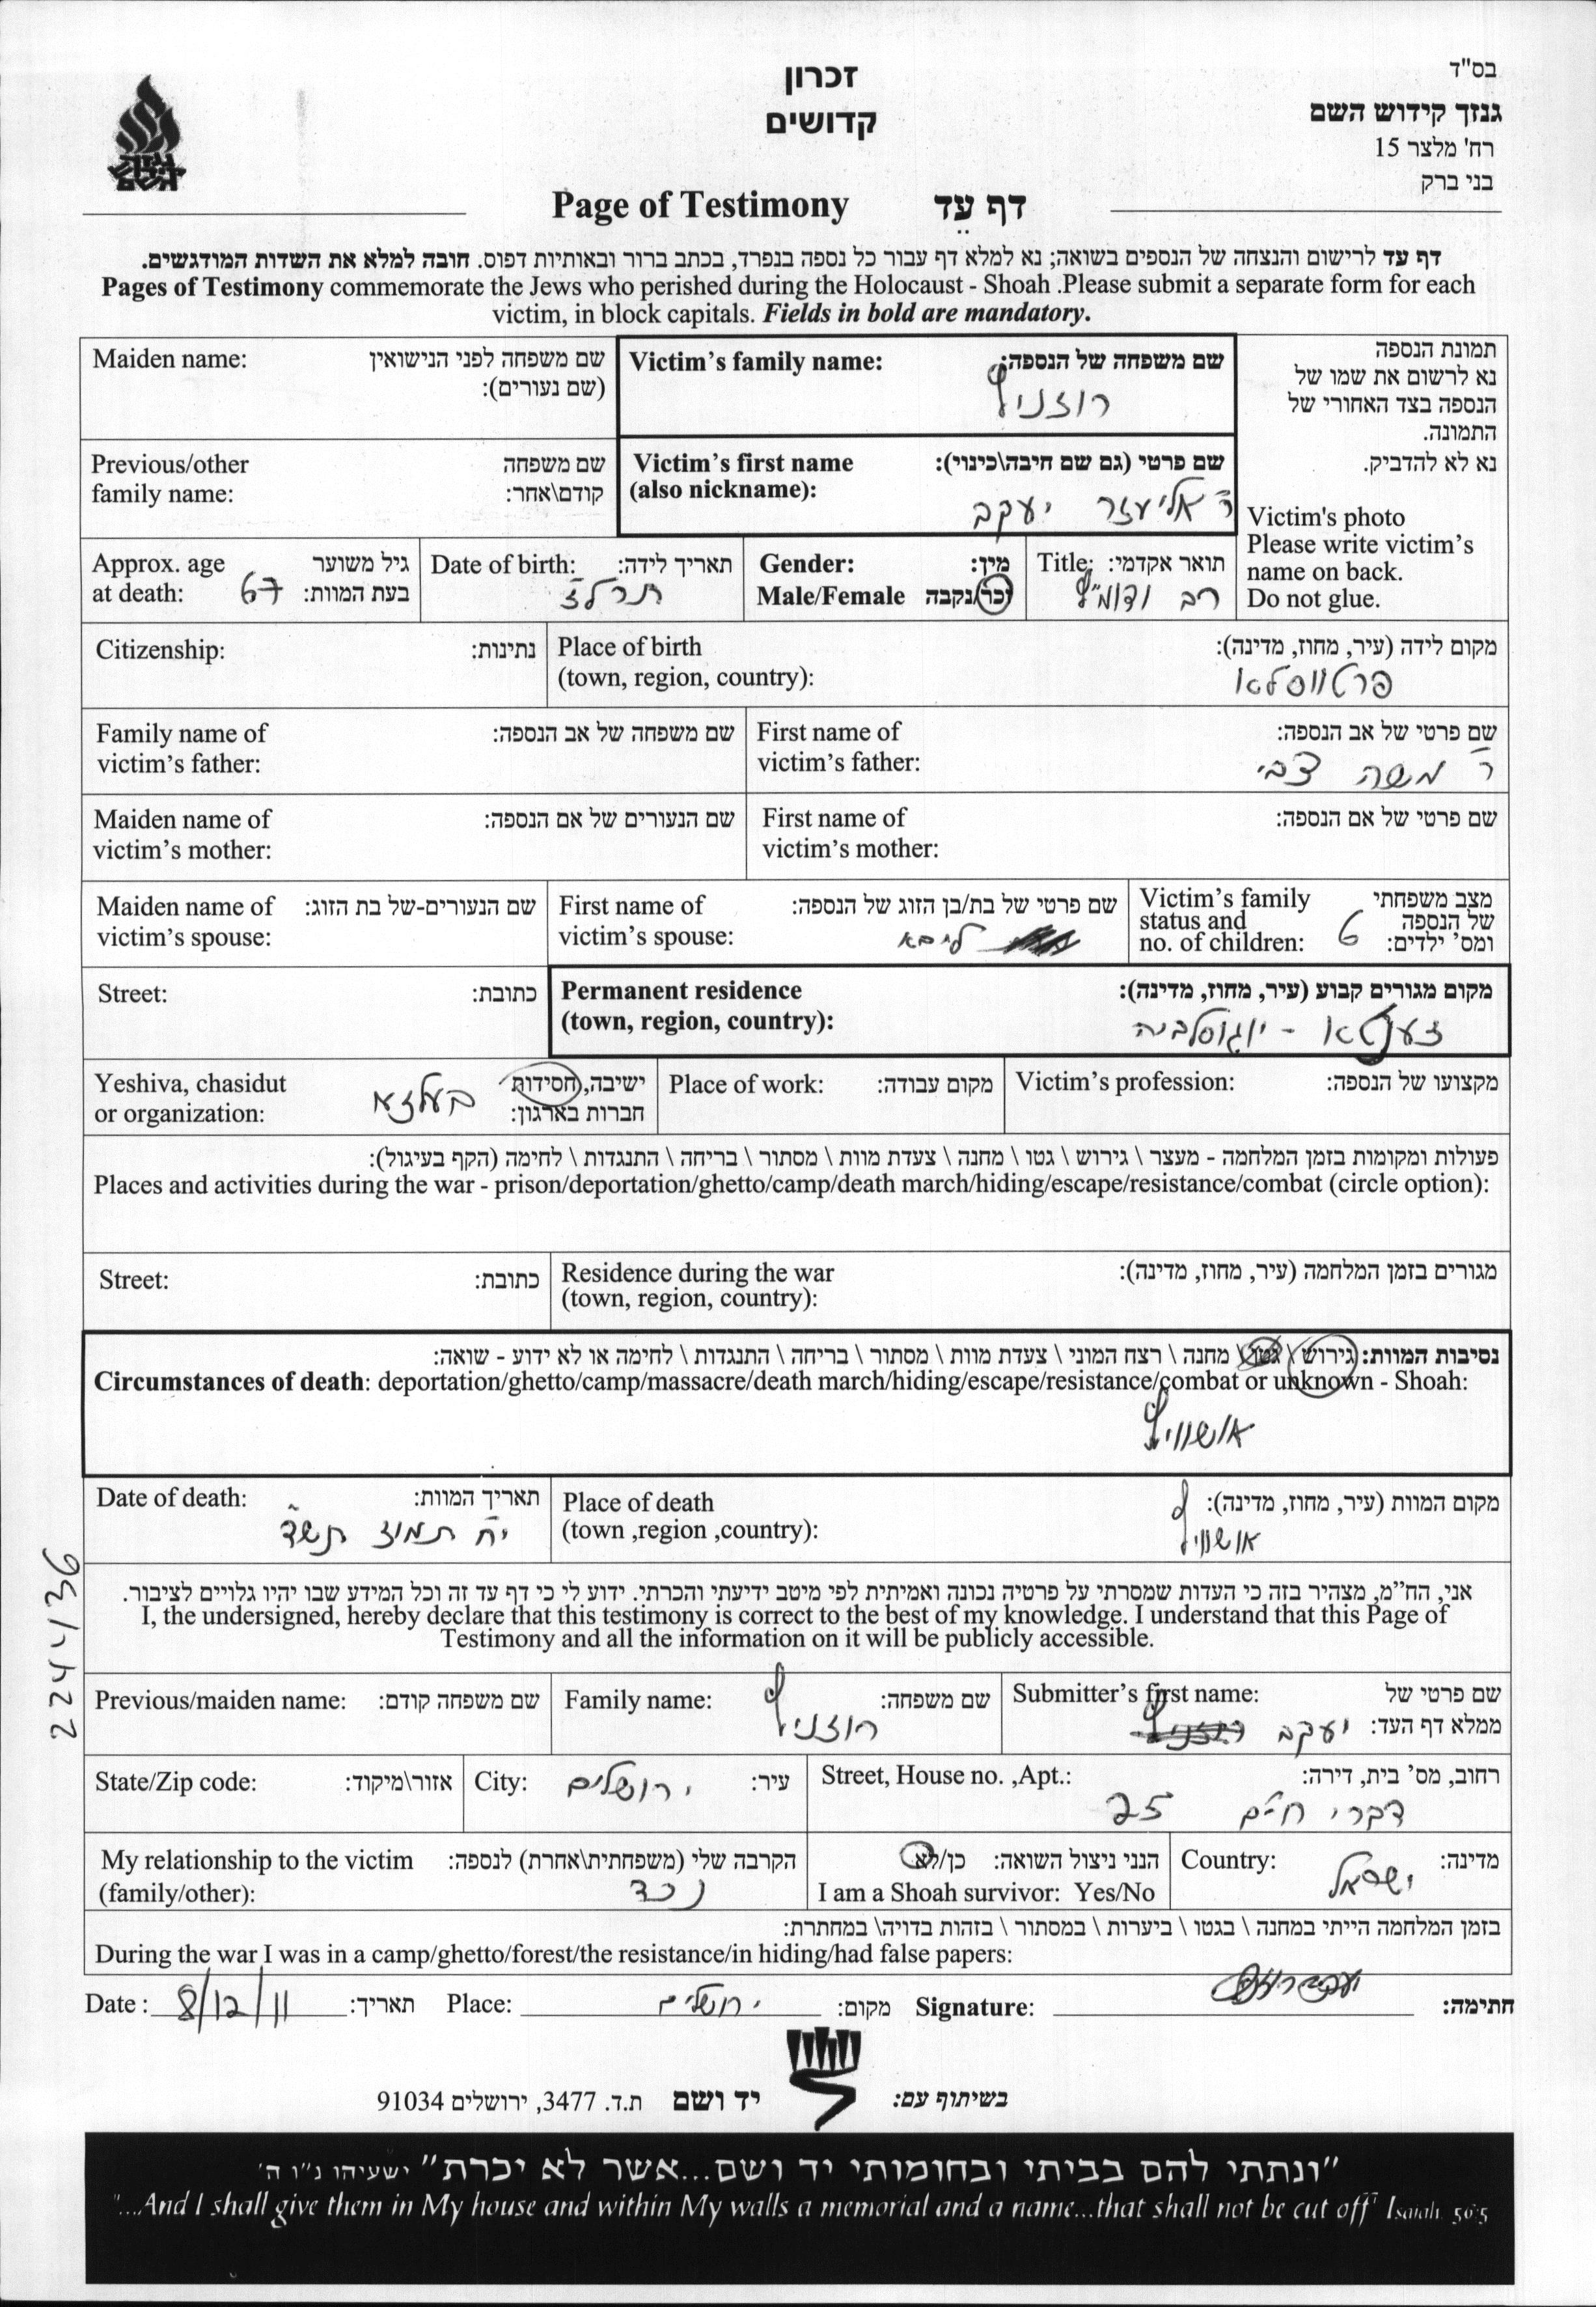 בס"ד
גנזך קידוש השם
רח' מלצר 15
בני ברק
זכרון
קדושים
Page of Testimony דף עֵד
דף עד לרישום והנצחה של הנספים בשואה; נא למלא דף עבור כל נספה בנפרד, בכתב ברור ובאותיות דפוס. חובה למלא את השדות המודגשים.
Pages of Testimony commemorate the Jews who perished during the Holocaust - Shoah .Please submit a separate form for each
victim, in block capitals. Fields in bold are mandatory.
תמונת הנספה
נא לרשום את שמו של
הנספה בצד האחורי של
התמונה.
נא לא להדביק.
Victim's photo
Please write victim's
name on back.
Do not glue.
Victim's family name: שם משפחה של הנספה:
רוזניץ
Maiden name: שם משפחה לפני הנישואין
(שם נעורים):
Victim's first name שם פרטי (גם שם חיבה\כינוי):
(also nickname):
ר' אליעזר יעקב
Previous/other שם משפחה
family name: קודם\אחר:
Title: תואר אקדמי:
רב ודומ"ץ
Gender: מין:
Male/Female זכר/נקבה
Date of birth: תאריך לידה:
תרלז
Approx. age גיל משוער
at death: בעת המוות: 67
Place of birth מקום לידה (עיר, מחוז, מדינה):
(town, region, country):
פרטווסלאו
Citizenship: נתינות:
First name of שם פרטי של אב הנספה:
victim's father:
ר' משה צבי
Family name of שם משפחה של אב הנספה:
victim's father:
First name of שם פרטי של אם הנספה:
victim's mother:
Maiden name of שם הנעורים של אם הנספה:
victim's mother:
Victim's family מצב משפחתי
status and של הנספה
no. of children: ומס' ילדים: 6
First name of שם פרטי של בת/בן הזוג של הנספה:
victim's spouse: ליבא
Maiden name of שם הנעורים-של בת הזוג:
victim's spouse:
Permanent residence מקום מגורים קבוע (עיר, מחוז, מדינה):
(town, region, country):
זענטא - יוגוסלביה
Street: כתובת:
Victim's profession: מקצועו של הנספה:
Place of work: מקום עבודה:
Yeshiva, chasidut ישיבה, חסידות
or organization: חברות בארגון: בעלזא
פעולות ומקומות בזמן המלחמה - מעצר \ גירוש \ גטו \ מחנה \ צעדת מוות \ מסתור \ בריחה \ התנגדות \ לחימה (הקף בעיגול):
Places and activities during the war - prison/deportation/ghetto/camp/death march/hiding/escape/resistance/combat (circle option):
Residence during the war מגורים בזמן המלחמה (עיר, מחוז, מדינה):
(town, region, country):
Street: כתובת:
נסיבות המוות: גירוש \ גטו \ מחנה \ רצח המוני \ צעדת מוות \ מסתור \ בריחה \ התנגדות \ לחימה או לא ידוע - שואה:
Circumstances of death: deportation/ghetto/camp/massacre/death march/hiding/escape/resistance/combat or unknown - Shoah:
אושוויץ
Place of death מקום המוות (עיר, מחוז, מדינה):
(town ,region ,country):
אושוויץ
Date of death: תאריך המוות:
י"ח תמוז תש"ד
אני, הח"מ, מצהיר בזה כי העדות שמסרתי על פרטיה נכונה ואמיתית לפי מיטב ידיעתי והכרתי. ידוע לי כי דף עד זה וכל המידע שבו יהיו גלויים לציבור.
I, the undersigned, hereby declare that this testimony is correct to the best of my knowledge. I understand that this Page of
Testimony and all the information on it will be publicly accessible.
Submitter's first name: שם פרטי של
ממלא דף העד: יעקב
Family name: שם משפחה:
רוזניץ
Previous/maiden name: שם משפחה קודם:
Street, House no. ,Apt.: רחוב, מס' בית, דירה:
דברי חיים 25
City: עיר: ירושלים
State/Zip code: אזור\מיקוד:
Country: מדינה:
ישראל
הנני ניצול השואה: כן/לא
I am a Shoah survivor: Yes/No
My relationship to the victim הקרבה שלי (משפחתית\אחרת) לנספה:
(family/other): נכד
בזמן המלחמה הייתי במחנה \ בגטו \ ביערות \ במסתור \ בזהות בדויה\ במחתרת:
During the war I was in a camp/ghetto/forest/the resistance/in hiding/had false papers:
Date : 8/12/11 תאריך: Place: ירושלים מקום: Signature: חתימה:
בשיתוף עם: יד ושם ת.ד. 3477, ירושלים 91034
"ונתתי להם בביתי ובחומותי יד ושם...אשר לא יכרת" ישעיהו נ"ו ה'
"...And I shall give them in My house and within My walls a memorial and a name...that shall not be cut off" Isaiah 56:5